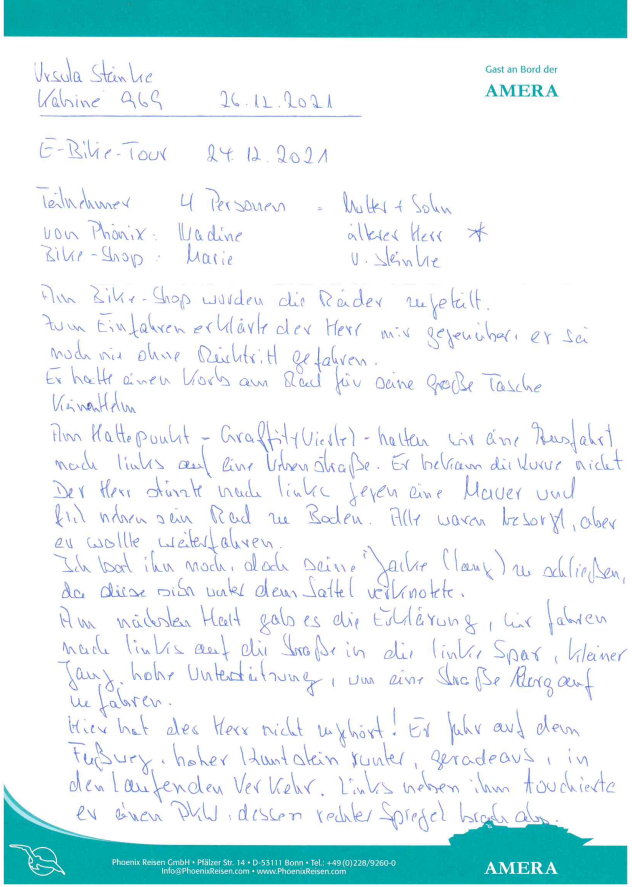 Gast an Bord der
AMERA
Ursula Steinke
Kabine 969 26.12.2021
E-Bike-Tour 24.12.2021
Teilnehmer 4 Personen = Mutter + Sohn
von Phönix: Nadine älterer Herr *
Bike-Shop: Marie U. Steinke
Am Bike-Shop wurden die Räder zugeteilt.
Zum Einfahren erklärte der Herr mir gegenüber, er sei
noch nie ohne Rücktritt gefahren.
Er hatte einen Korb am Rad für seine große Tasche
Kein Helm
Am Haltepunkt - Graffity Viertel - hatten wir eine Ausfahrt
nach links auf eine Nebenstraße. Er bekam die Kurve nicht
Der Herr stürzte nach links gegen eine Mauer und
fiel neben sein Rad zu Boden. Alle waren besorgt, aber
er wollte weiterfahren.
Ich bat ihn noch, doch seine Jacke (lang) zu schließen,
da diese sich unter dem Sattel verknotete.
Am nächsten Halt gab es die Erklärung, wir fahren
nach links auf die Straße in die linke Spur, kleiner
Gang, hohe Unterstützung, um eine Straße Bergauf
zu fahren.
Hier hat der Herr nicht zugehört! Er fuhr auf dem
Fußweg, hoher Kantstein runter, geradeaus, in
den laufenden Verkehr. Links neben ihm touchierte
er einen PKW, dessen rechter Spiegel brach ab.
Phoenix Reisen GmbH • Pfälzer Str. 14 • D-53111 Bonn • Tel.: +49(0)228/9260-0
Info@PhoenixReisen.com • www.PhoenixReisen.com
AMERA